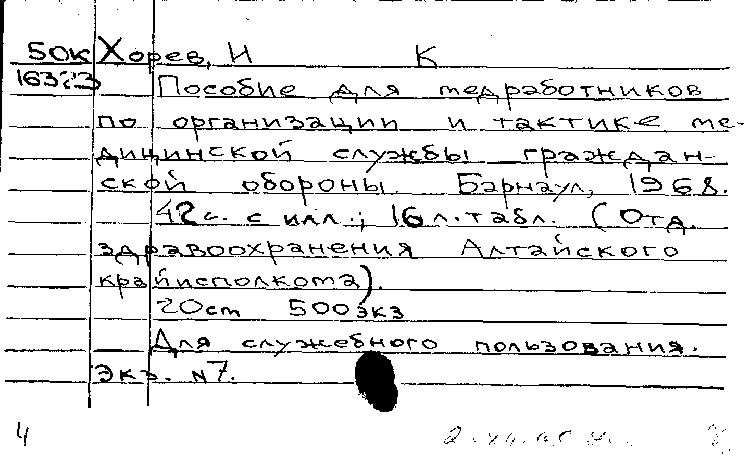 50К Хорев, И К
Пособие для медработников
по организации и тактике ме-
дицинской службы граждан-
ской обороны. Барнаул, 1968.
42с. с илл.; 16 л. табл. (Отд.
здравоохранения Алтайского
крайисполкома).
20см 500экз
Для служебного пользования.
Экз. №7.
4